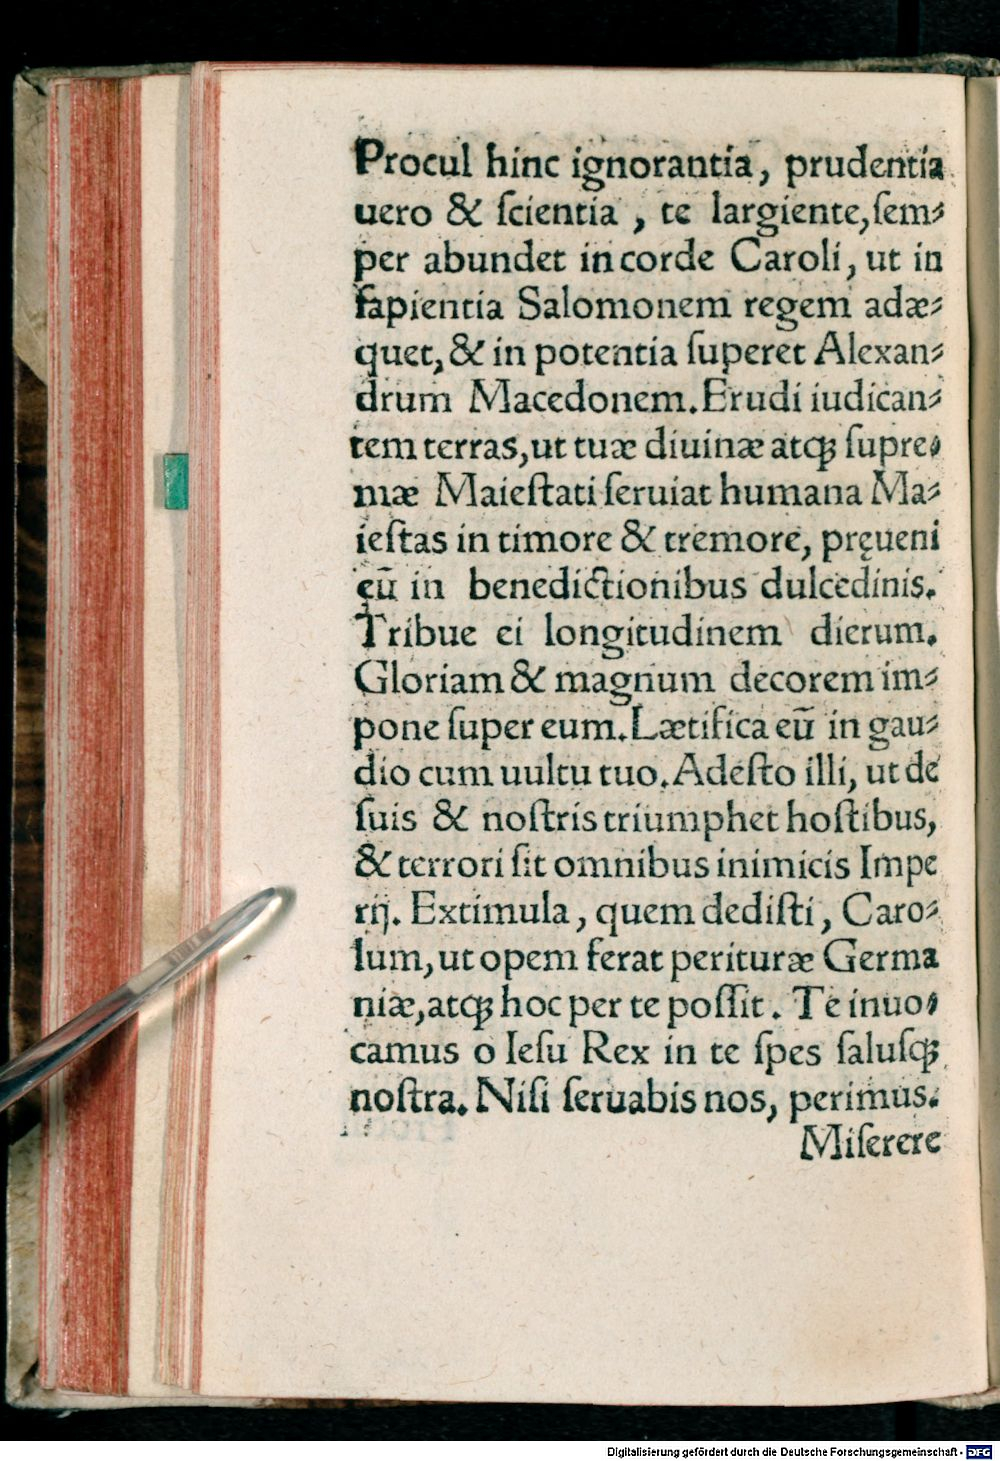 Procul hinc ignorantia, prudentia
uero & ſcientia , te largiente,ſem⸗
per abundet in corde Caroli, ut in
ſapientia Salomonem regem adæ⸗
quet, & in potentia ſuperet Alexan⸗
drum Macedonem. Erudi iudican⸗
tem terras, ut tuæ diuinæ atqꝫ ſupre⸗
mæ Maieſtati ſeruiat humana Ma⸗
ieſtas in timore & tremore, pręueni
eū in benedictionibus dulcedinis.
Tribue ei longitudinem dierum.
Gloriam & magnum decorem im⸗
pone ſuper eum. Lætifica eū in gau⸗
dio cum uultu tuo. Adeſto illi, ut de
ſuis & noſtris triumphet hoſtibus,
& terrori ſit omnibus inimicis Impe
rij. Extimula, quem dediſti, Caro⸗
lum, ut opem ferat perituræ Germa
niæ, atqꝫ hoc per te poſſit. Te inuo⸗
camus o Ieſu Rex in te ſpes ſaluſqꝫ
noſtra. Niſi ſeruabis nos, perimus.
Miſerere
Digitalisierung gefördert durch die Deutsche Forschungsgemeinschaft - DFG